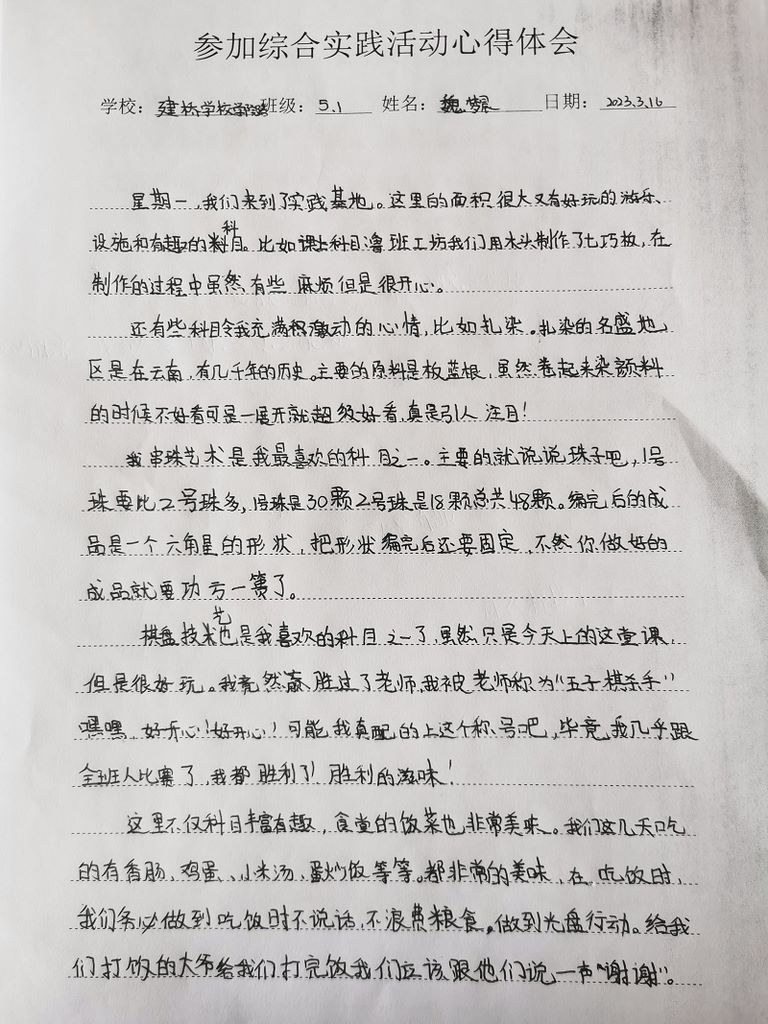 参加综合实践活动心得体会
学校：建桥学校 班级：5.1 姓名：魏 日期：2023.3.16
星期一，我们来到了实践基地。这里的面积很大又有好玩的游乐
设施和有趣的科目。比如课上科目鲁班工坊我们用木头制作了七巧板，在
制作的过程中虽然有些麻烦但是很开心。
还有些科目令我充满积激动的心情，比如扎染。扎染的名盛地
区是在云南，有几千年的历史。主要的原料是板蓝根，虽然卷起来染颜料
的时候不好看可是一展开就超级好看，真是引人注目！
我串珠艺术是我最喜欢的科目之一。主要的就说说珠子吧，1号
珠要比2号珠多，1号珠是30颗2号珠是18颗总共48颗。编完后的成
品是一个六角星的形状，把形状编完后还要固定，不然你做好的
成品就要功亏一篑了。
棋盘技艺也是我喜欢的科目之一了，虽然只是今天上的这堂课，
但是很好玩。我竟然赢胜过了老师，我被老师称为“五子棋杀手”
嘿嘿，好开心！好开心！可能我真配的上这个称号吧，毕竟我几乎跟
全班人比赛了，我都胜利了！胜利的滋味！
这里不仅科目丰富有趣，食堂的饭菜也非常美味。我们这几天吃
的有香肠、鸡蛋、小米汤、蛋炒饭等等。都非常的美味，在吃饭时，
我们务必做到吃饭时不说话，不浪费粮食，做到光盘行动。给我
们打饭的大爷给我们打完饭我们应该跟他们说一声“谢谢”。